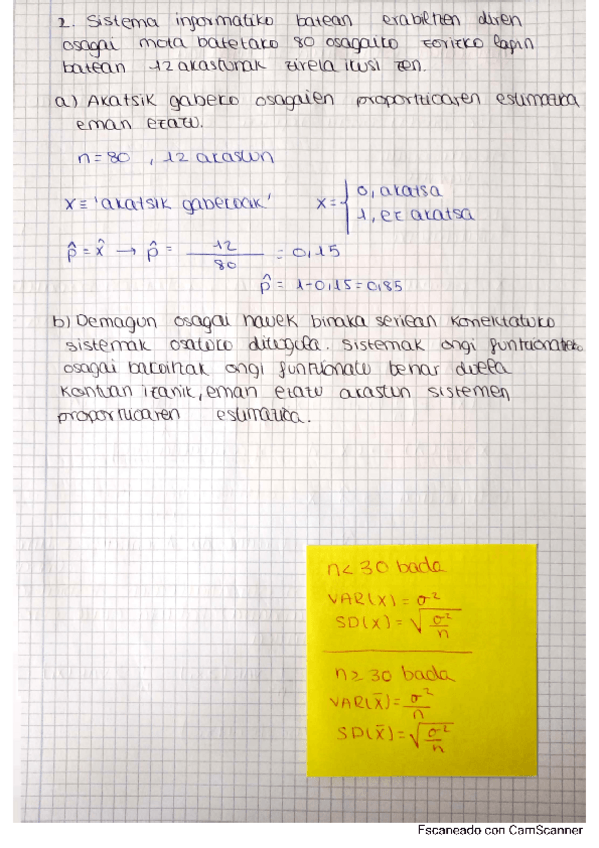 2. Sistema informatiko batean erabiltzen diren
osagai mota batetako 80 osagaiko zorizko lagin
batean 12 akastunak zirela ikusi zen.
a) Akatsik gabeko osagaien proportzioaren estimazioa
eman ezazu.
n=80 , 12 akastun
x ≡ 'akatsik gabekoak' x = { 0, akatsa
1, ez akatsa
p̂ = x̂ → p̂ = 12/80 = 0,15
p̂ = 1-0,15=0,85
b) Demagun osagai hauek binaka seriean konektatuko
sistemak osatuko ditugula. Sistemak ongi funtzionatzeko
osagai bakoitzak ongi funtzionatu behar duela
kontuan izanik, eman ezazu akastun sistemen
proportzioaren estimazioa.
n< 30 bada
VAR(X) = σ²
SD(X) = √σ²/n
n≥ 30 bada
VAR(X̄) = σ²/n
SD(X̄) = √σ²/n
Escaneado con CamScanner